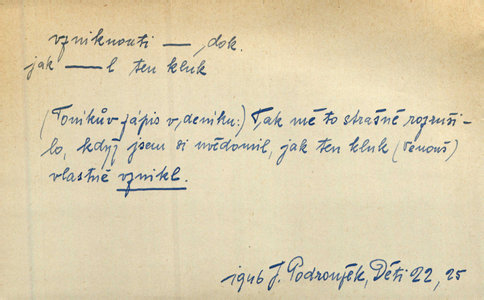 vzniknouti — dok.
jak — l ten kluk
(Toníkův zápis v deníku:) Tak mě to strašně rozruši-
lo, když jsem si uvědomil, jak ten kluk (Venouš)
vlastně vznikl.
1946 J. Podroužek, Děti 22, 25